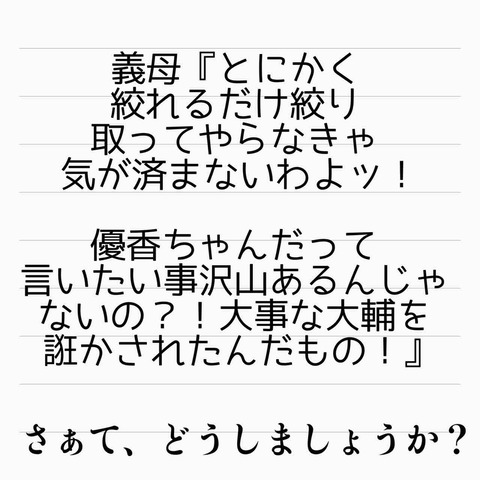 義母『とにかく
絞れるだけ絞り
取ってやらなきゃ
気が済まないわよッ！
優香ちゃんだって
言いたい事沢山あるんじゃ
ないの？！大事な大輔を
誑かされたんだもの！』
さぁて、どうしましょうか？